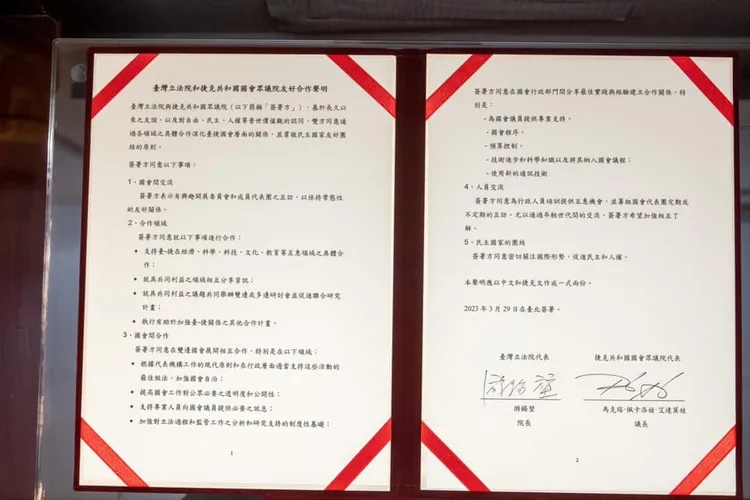 臺灣立法院和捷克共和國國會眾議院友好合作聲明
臺灣立法院與捷克共和國眾議院（以下簡稱「簽署方」），基於長久以
來之友誼，以及對自由、民主、人權等普世價值觀的認同，雙方同意通
過各領域之具體合作深化臺捷國會層面的關係，並奉獻民主國家友好團
結的原則。
簽署方同意以下事項：
1、國會間交流
簽署方表示有興趣開展委員會和成員代表團之互訪，以保持常態性
的友好關係。
2、合作領域
簽署方同意就以下事項進行合作：
• 支持臺-捷在經濟、科學、科技、文化、教育等互惠領域之具體合
作；
• 就具共同利益之領域相互分享資訊；
• 就具共同利益之議題共同舉辦雙邊或多邊研討會並促進聯合研究
計畫；
• 執行有助於加強臺-捷關係之其他合作計畫。
3、國會間合作
簽署方同意在雙邊國會展開相互合作，特別是在以下領域：
• 根據代表機構工作的現代原則和在行政層面適當支持這些活動的
最佳做法，加強國會自治；
• 提高國會工作對公眾必要之透明度和公開性；
• 支持專業人員向國會議員提供必要之訊息；
• 加強對立法過程和監管工作之分析和研究支持的制度性基礎；
1
簽署方同意在國會行政部門間分享最佳實踐與經驗建立合作關係，特
別是：
- 為國會議員提供專業支持，
- 國會程序，
- 預算控制，
- 技術進步和科學知識以及將其納入國會議程；
- 使用新的通訊技術
4、人員交流
簽署方同意為行政人員培訓提供互惠機會，並籌組國會代表團定期或
不定期的互訪，尤以通過年輕世代間的交流，簽署方希望加強相互了
解。
5、民主國家的團結
簽署方同意密切關注國際形勢，促進民主和人權。
本聲明應以中文和捷克文作成一式兩份。
2023 年 3 月 29 日在臺北簽署。
臺灣立法院代表
捷克共和國國會眾議院代表
游錫堃
游錫堃
院長
馬克塔·佩卡洛娃·艾達莫娃
議長
2